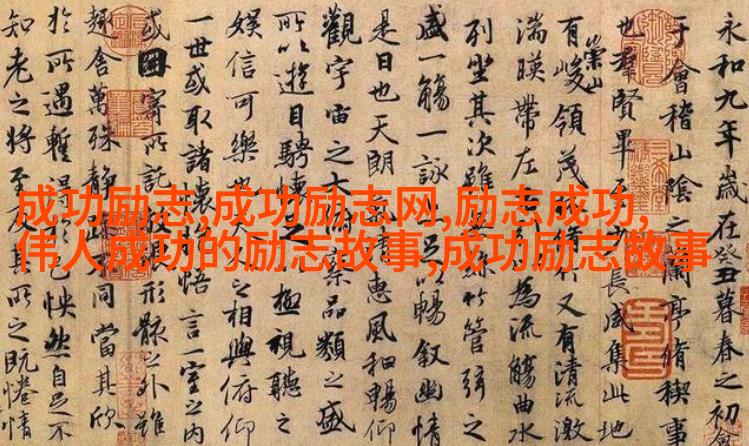 成功励志,成功励志网,励志成功,
伟人成功的励志故事,成功励志故事
永和九年歲在癸丑暮春之初會
于會稽山陰之蘭亭脩稧事
也群賢畢長咸集此地
有崇山峻領茂脩又有清流激
湍暎帶左為流觴曲水
列坐其次雖竹管弦之
盛一觴一詠足以暢叙幽情
是日也天朗惠風和暢仰
觀宇宙之大俯察品類之盛
所以遊目騁懷極視聽之
娛信可樂也夫人之相與俯仰
一世或取諸懷悟言一室之內
或因寄所託形骸之外雖
趣舍萬殊靜同當其欣
於所遇暫得快然自足不
知老之將至及其所之既惓情